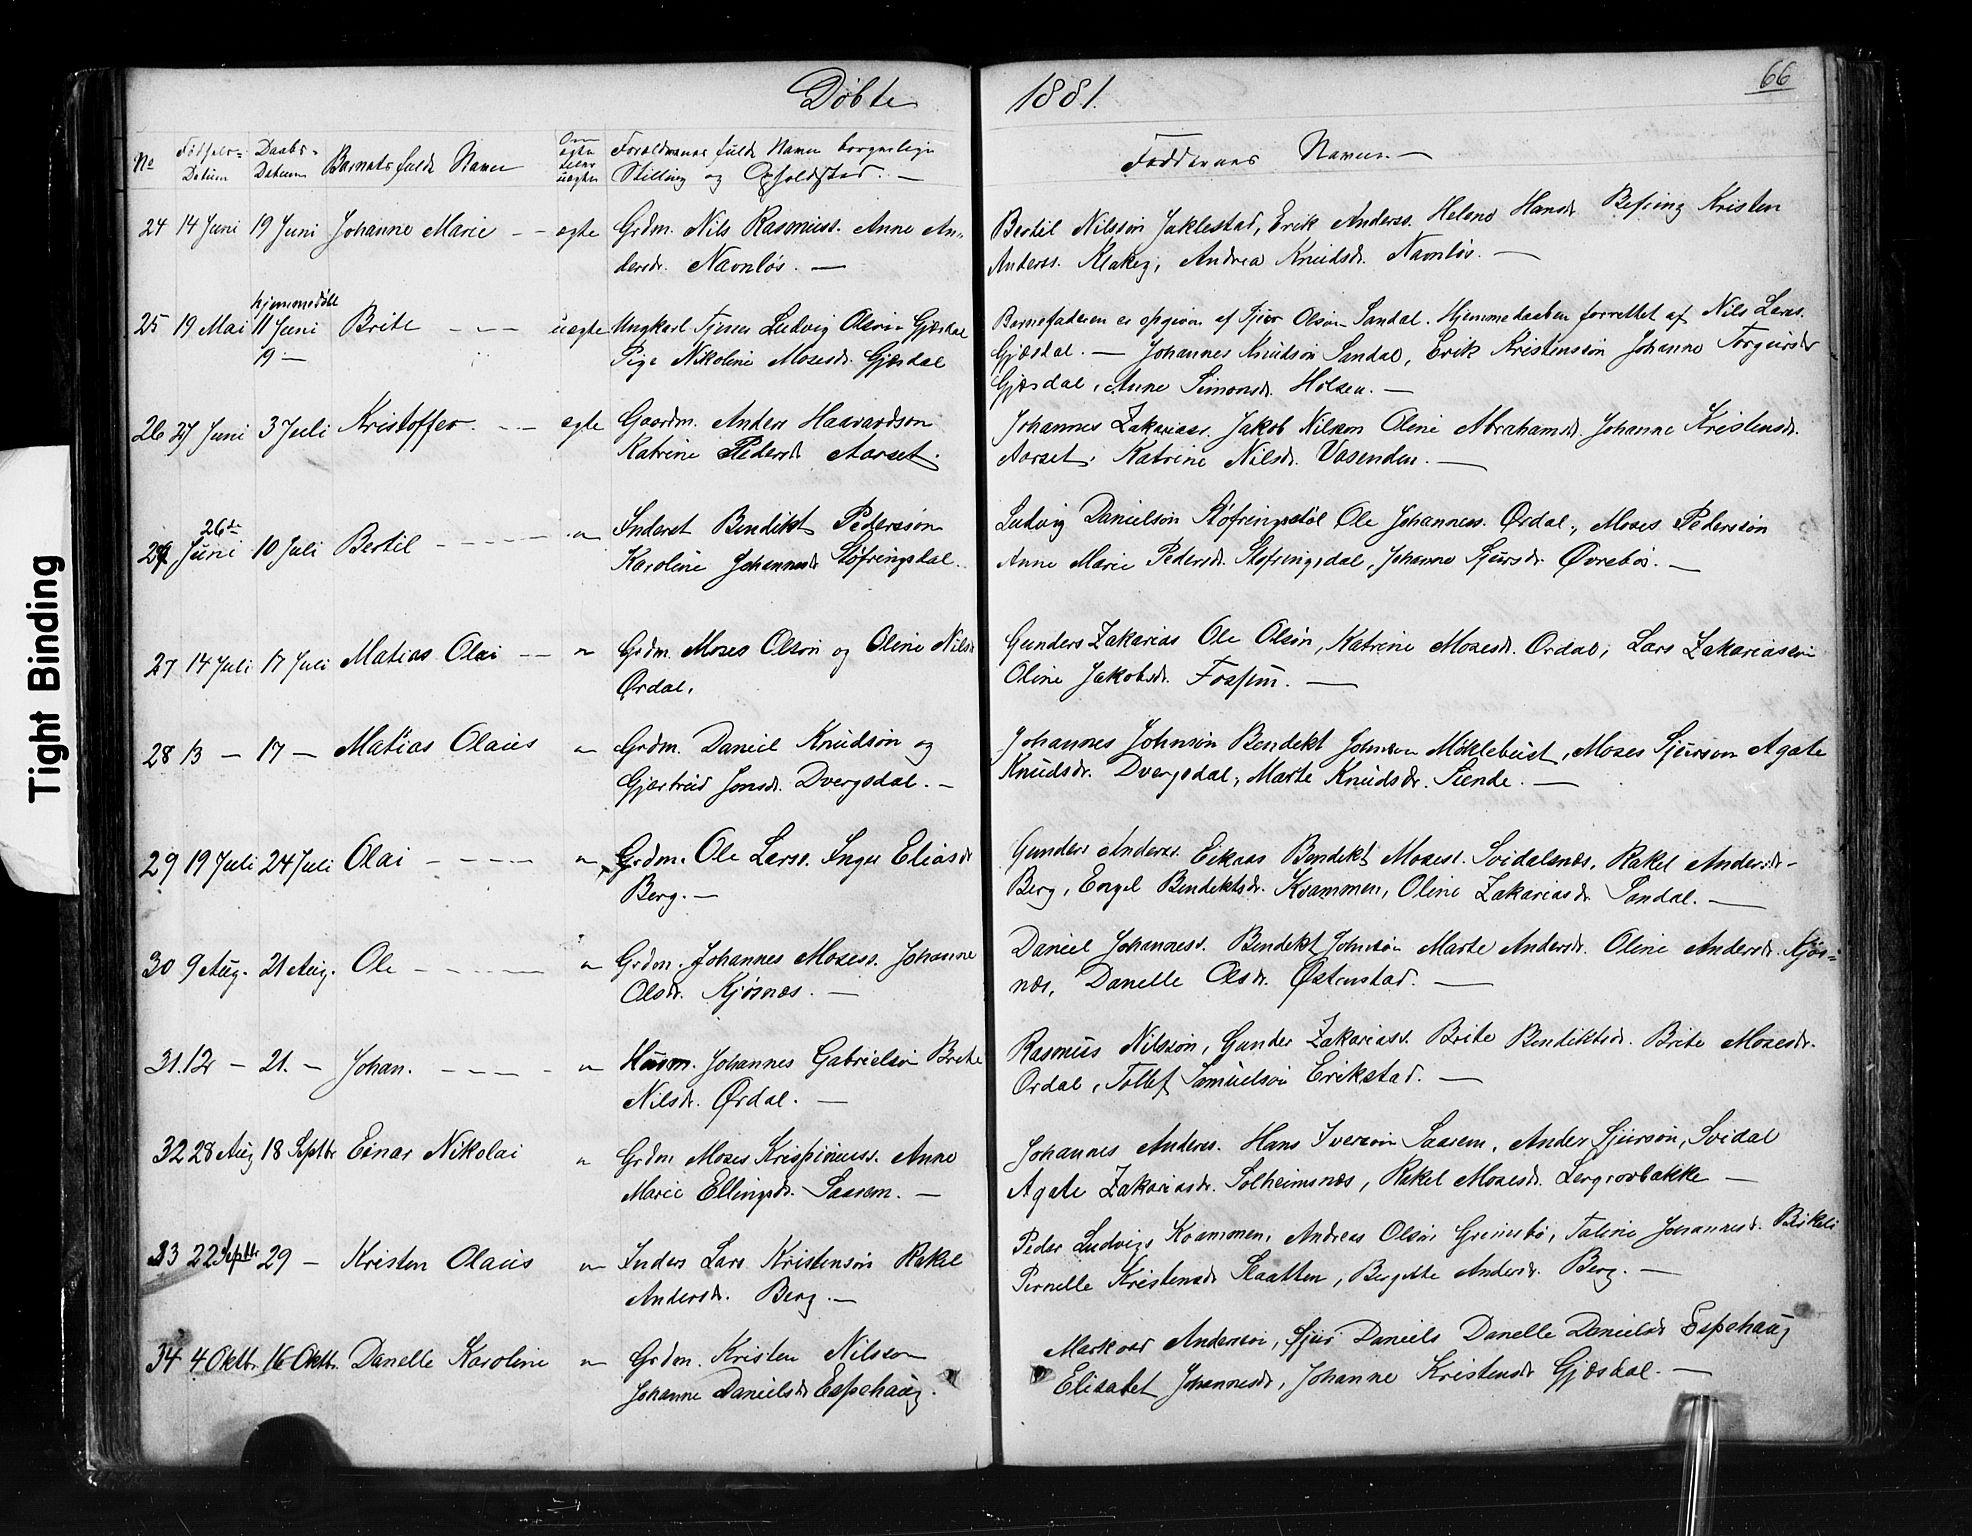 Døbte 1881.
66
No Fødsels- Datum Daabs- Datum Barnets fulde Navn Om ægte eller uægte Forældrenes fulde Navn borgerlige Stilling og Opholdsted. —
Faddernes Navne. —
24 14 Juni 19 Juni Johanne Marie - - ægte Grdm. Nils Rasmuss. Anne An-
dersdr. Navnløs. —
Bertil Nilssøn Jaklestad, Erik Anderss. Helene Hansdr. Befring Kristen
Anderss. Klakeg, Andrea Knudsdr. Navnløs. —
hjemmedøbt
25 19 Mai 11 Juni Brite - - - uægte Ungkarl Tjener Ludvig Olsøn Gjæsdal
19 — Pige Nikoline Mosesdr. Gjæsdal
Barnefaderen er opgiven af Sjur Olsøn Sandal. Hjemmedaaben forrettet af Nils Larss.
Gjæsdal. — Johannes Knudsøn Sandal, Erik Kristenssøn Johanne Torgersdr
Gjæsdal, Anne Simonsdr. Holsen. —
26 27 Juni 3 Juli Kristoffer. - - ægte Gaardm. Anders Haavardson
Katrine Pedersdr Aarset.
Johannes Zakariass. Jakob Nilsson Oline Abrahamsdr. Johanne Kristensdr.
Aarset, Katrine Nilsdr. Vasenden. —
26de
Juni 10 Juli Bertil - - - - - " Inderst Bendikt Pederssøn
Karoline Johannesdr Støfringsdal.
Ludvig Danielsøn Støfringsdal Ole Johanness. Ørdal, Moses Pederssøn
Anne Marie Pedersdr. Støfringsdal, Johanne Sjursdr. Øvrebø. —
27 14 Juli 17 Juli Matias Olai - - " Grdm. Moses Olsøn og Oline Nilsdr
Ørdal.
Gunders Zakarias Ole Olsøn, Katrine Mosesdr. Ørdal, Lars Zakariassøn
Oline Jakobsdr. Fossum. —
28 13 — 17 — Matias Olaus " Grdm. Daniel Knudsøn og
Gjertrud Jonsdr. Dvergsdal. —
Johannes Johnsøn Bendikt Johnsøn Møklebust, Moses Sjurson Agate
Knudsdr. Dvergsdal, Marte Knudsdr. Sunde. —
29 19 Juli 24 Juli Olai - - - - " Grdm. Ole Larss. Inger Eliasdr
Berg. —
Gunder Anderss. Eikaas Bendikt Mosess. Svidalsnæs, Rakel Andersdr-
Berg, Engel Bendiktsdr. Kvammen, Oline Zakariasdr. Sandal. —
30 9 Aug. 21 Aug. Ole - - - - - " Grdm. Johannes Mosess. Johanne
Olsdr. Kjøsnæs. —
Daniel Johanness. Bendikt Johnsøn Marte Andersdr. Oline Andersdr. Kjøs-
næs, Danelle Olsdr. Østenstad. —
31. 12 — 21. — Johan. - - - - " Husm. Johannes Gabrielsøn Brite
Nilsdr. Ørdal. —
Rasmus Nilssøn, Gunder Zakariass. Brite Bendiktsdr. Brite Mosesdr.
Ørdal, Tollef Samuelsøn Erikstad. —
32 28 Aug 18 Septbr Einar Nikolai " Grdm Moses Krispinuss. Anne
Marie Ellingsdr. Saasem. —
Johannes Anderss. Hans Iversøn Saasem, Anders Sjursøn, Svidal
Agate Zakariasdr. Solheimsnæs, Rakel Mosesdr. Lergrovbakke —
33 22 Septbr 29 — Kristen Olaus " Inders Lars Kristensøn Rakel
Andersdr. Berg. —
Peder Ludvigs Kvammen, Andreas Olsøn Grimsbø, Taline Johannesdr.
Pernelle Kristensdr Slaatten, Bergitte Andersdr. Berg. —
34 4 Oktbr. 16 Oktbr. Danelle Karoline " Grdm. Kristen Nilsson
Johanne Danielsdr Espehaug.
Markvar Anderssøn, Sjur Daniels Danelle Danielsdr Espehaug
Elisabet Johannesdr, Johanne Kristensdr Gjæsdal. —
Tight Binding